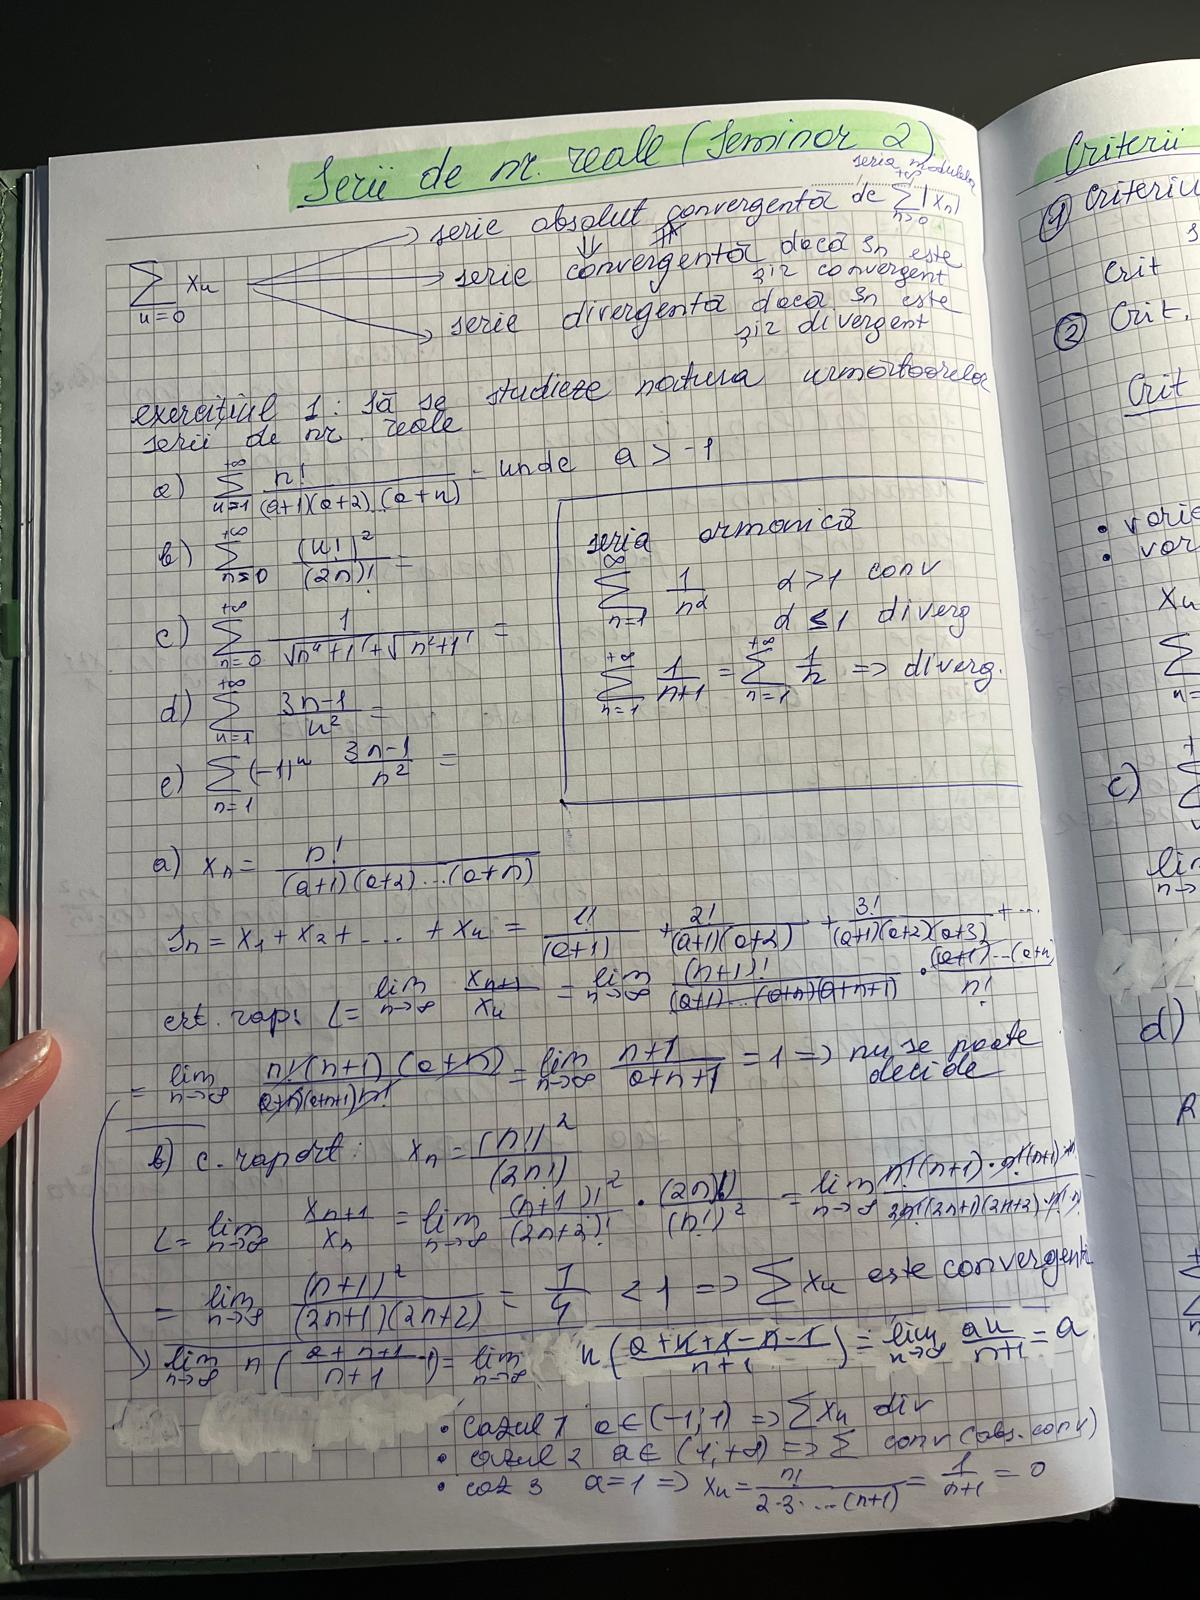 Serii de nr. reale (Seminar 2)
seria modulelor
serie absolut convergentă de \sum_{n>0}^{+\infty} |x_n|
\sum_{n=0} x_n
serie convergentă dacă S_n este
șir convergent
serie divergentă dacă S_n este
șir divergent
exercițiul 1: Să se studieze natura urmortoorelor
serii de nr. reale
a) \sum_{n=1}^{+\infty} \frac{n!}{(a+1)(a+2)...(a+n)} = unde a > -1
b) \sum_{n=0}^{+\infty} \frac{(n!)^2}{(2n)!} =
c) \sum_{n=0}^{+\infty} \frac{1}{\sqrt{n^4+1}+\sqrt{n^2+1}} =
d) \sum_{n=1}^{+\infty} \frac{3n-1}{n^2} =
e) \sum_{n=1} (-1)^n \frac{3n-1}{n^2} =
seria armonică
\sum_{n=1}^{\infty} \frac{1}{n^α} α>1 conv
α ≤ 1 diverg
\sum_{n=1}^{+\infty} \frac{1}{n+1} = \sum_{n=1}^{+\infty} \frac{1}{n} => diverg.
a) x_n = \frac{n!}{(a+1)(a+2)...(a+n)}
S_n = x_1 + x_2 + ... + x_n = \frac{1!}{(a+1)} + \frac{2!}{(a+1)(a+2)} + \frac{3!}{(a+1)(a+2)(a+3)} + ...
crt. rap: L = \lim_{n→∞} \frac{x_{n+1}}{x_n} = \lim_{n→∞} \frac{(n+1)!}{(a+1)...(a+n)(a+n+1)} · \frac{(a+1)...(a+n)}{n!}
= \lim_{n→∞} \frac{n!(n+1)(a+n)}{(a+n)(a+n+1)n!} = \lim_{n→∞} \frac{n+1}{a+n+1} = 1 => nu se poate
decide
b) c. raport: x_n = \frac{(n!)^2}{(2n!)}
L = \lim_{n→∞} \frac{x_{n+1}}{x_n} = \lim_{n→∞} \frac{(n+1)!^2}{(2n+2)!} · \frac{(2n)!}{(n!)^2} = \lim_{n→∞} \frac{n!(n+1)·n!(n+1)}{2n!(2n+1)(2n+2)·n!}
= \lim_{n→∞} \frac{(n+1)^2}{(2n+1)(2n+2)} = \frac{1}{4} < 1 => \sum x_n este convergentă
\lim_{n→∞} n(\frac{a+n+1}{n+1} - 1) = \lim_{n→∞} n(\frac{a+n+1-n-1}{n+1}) = \lim_{n→∞} \frac{an}{n+1} = a
• cazul 1 a∈(-1;1) => \sum x_n div
• cazul 2 a∈(1;+∞) => \sum conv (abs. conv)
• caz 3 a=1 => x_n = \frac{n!}{2·3·...(n+1)} = \frac{1}{n+1} = 0
Criterii
① Criteriu
Crit
② Crit.
Crit
x_n
c)
lim
n→∞
d)